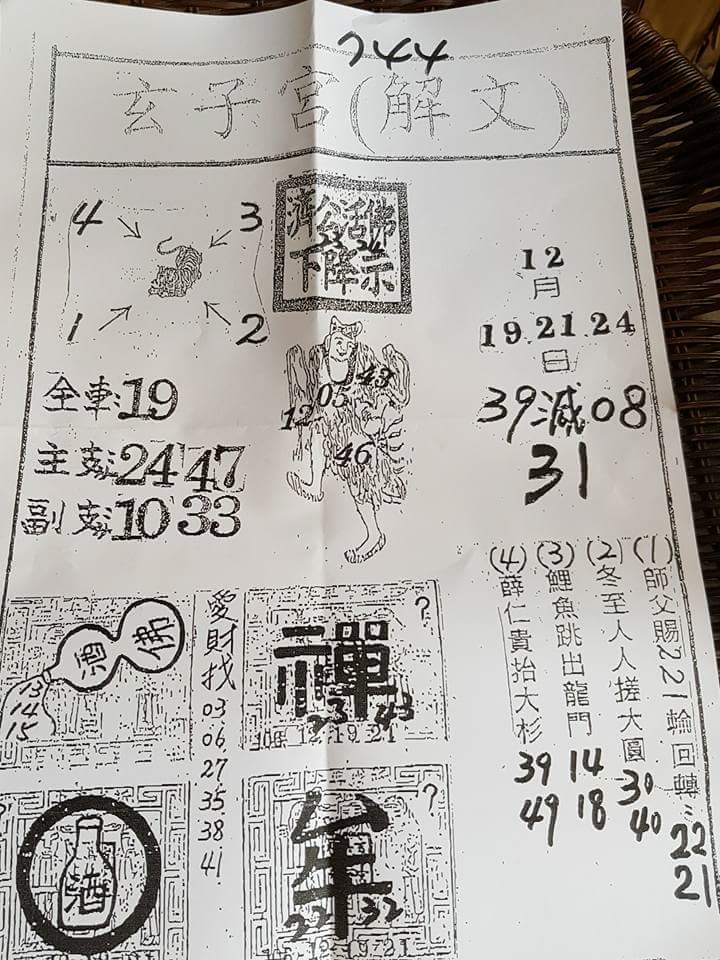 玄子宮(解文)
4 3
1 2
濟公活佛
23 34
下降示
12
月
19.21.24
日
39減08
31
全車:19
主支:24 47
副支:10 33
12 05 43
46
(1)師父賜221輪回轉:22 21
(2)冬至人人搓大圓 30 40
(3)鯉魚跳出龍門 14 18
(4)薛仁貴抬大杉 39 49
酒 佛
13
14
15
愛財找
03
06
27
35
38
41
?
禪
23 43
106-12-19.21
酒
?
牟
22 32
106-12-19.21